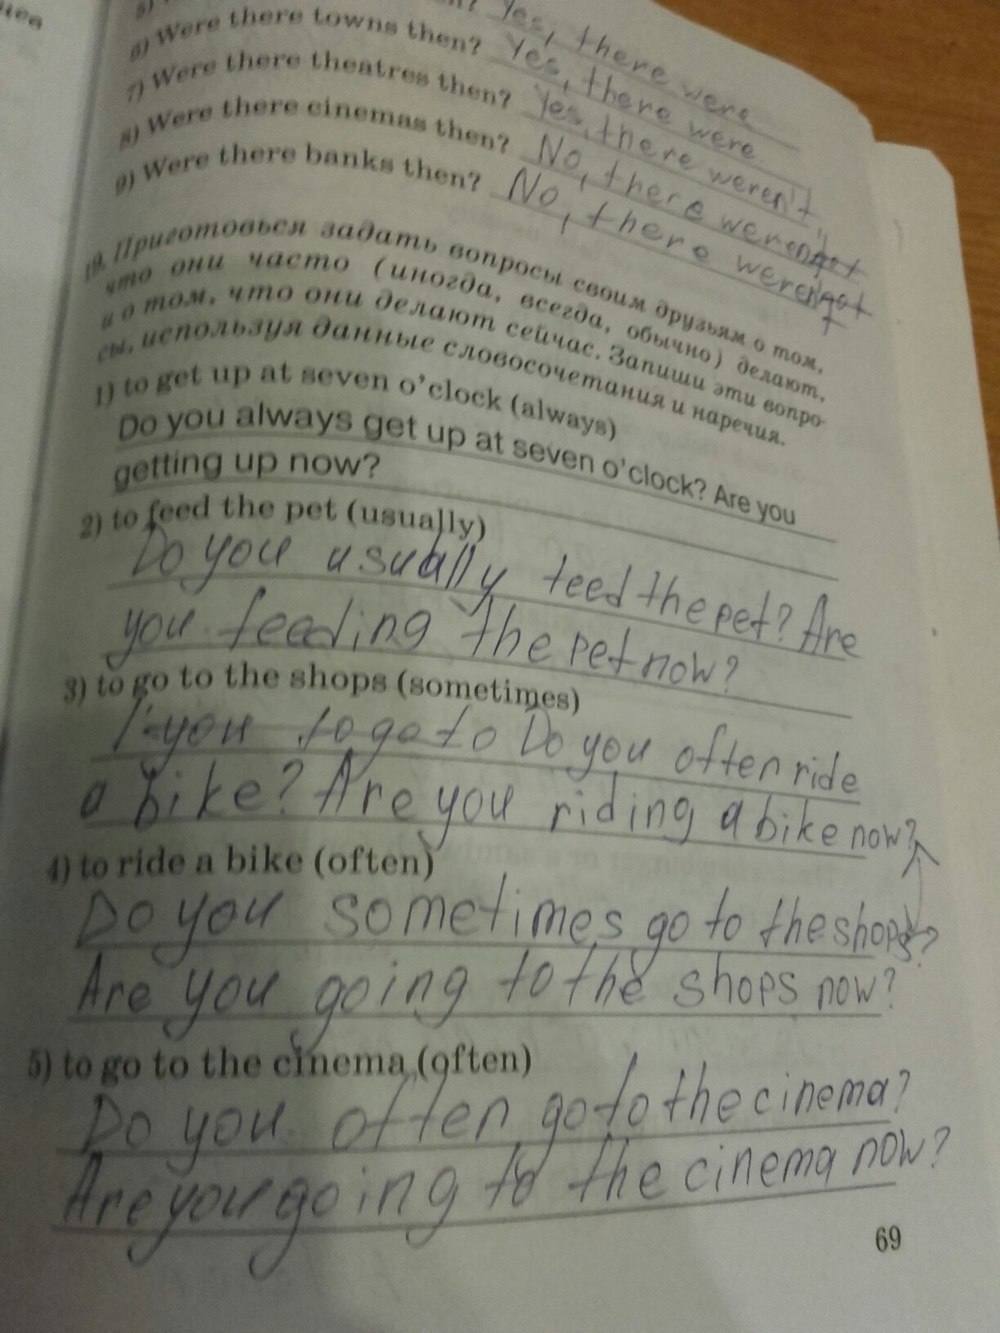 Yes, there were
6) Were there towns then? Yes, there were
7) Were there theatres then? Yes, there weren't
8) Were there cinemas then? No, there weren't
9) Were there banks then? No, there weren't
19. Приготовься задать вопросы своим друзьям о том,
что они часто (иногда, всегда, обычно) делают,
и о том, что они делают сейчас. Запиши эти вопро-
сы, используя данные словосочетания и наречия.
1) to get up at seven o'clock (always)
Do you always get up at seven o'clock? Are you
getting up now?
2) to feed the pet (usually)
Do you usually feed the pet? Are
you feeding the pet now?
3) to go to the shops (sometimes)
you to go to Do you often ride
a bike? Are you riding a bike now?
4) to ride a bike (often)
Do you sometimes go to the shops?
Are you going to the shops now?
5) to go to the cinema (often)
Do you often go to the cinema?
Are you going to the cinema now?
69